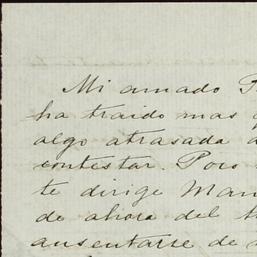 Mi amado
ha traido mas
algo atrasada
contestar. Poco
te dirige Man
de ahora del
ausentarse de